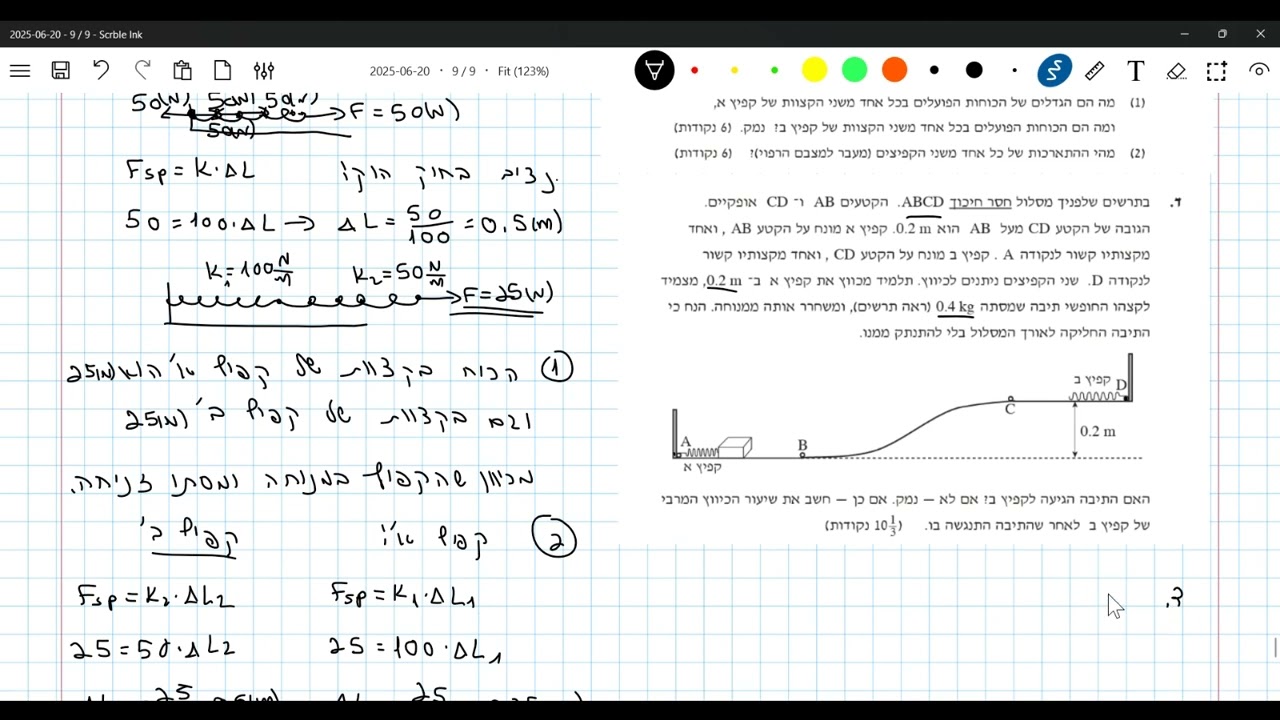 2025-06-20 - 9 / 9 - Scrble Ink
2025-06-20 • 9 / 9 • Fit (123%)
T
50(N) 50(N) 50(N) F = 50(N)
50(N)
נציב בחוק הוק:
Fsp = K·ΔL
50 = 100·ΔL → ΔL = 50/100 = 0.5(m)
K₁=100 N/m K₂=50 N/m
F=25(N)
① הכוח בקצוות של קפיץ א' הוא 25(N)
וגם בקצוות של קפיץ ב' 25(N)
מכיוון שהקפיץ במנוחה ומסתו זניחה.
② קפיץ א': קפיץ ב'
Fsp = K₁·ΔL₁ Fsp = K₂·ΔL₂
25 = 100·ΔL₁ 25 = 50·ΔL₂
25 25
(1) מה הם הגדלים של הכוחות הפועלים בכל אחד משני הקצוות של קפיץ א,
ומה הם הכוחות הפועלים בכל אחד משני הקצוות של קפיץ ב? נמק. (6 נקודות)
(2) מהי ההתארכות של כל אחד משני הקפיצים (מעבר למצבם הרפוי)? (6 נקודות)
ד. בתרשים שלפניך מסלול חסר חיכוך ABCD. הקטעים AB ו־ CD אופקיים.
הגובה של הקטע CD מעל AB הוא 0.2 m. קפיץ א מונח על הקטע AB, ואחד
מקצותיו קשור לנקודה A. קפיץ ב מונח על הקטע CD, ואחד מקצותיו קשור
לנקודה D. שני הקפיצים ניתנים לכיווץ. תלמיד מכווץ את קפיץ א ב־ 0.2 m, מצמיד
לקצהו החופשי תיבה שמסתה 0.4 kg (ראה תרשים), ומשחרר אותה ממנוחה. הנח כי
התיבה החליקה לאורך המסלול בלי להתנתק ממנו.
קפיץ ב D
C
0.2 m
A B
קפיץ א
האם התיבה הגיעה לקפיץ ב? אם לא — נמק. אם כן — חשב את שיעור הכיווץ המרבי
של קפיץ ב לאחר שהתיבה התנגשה בו. (10 1/3 נקודות)
ד.